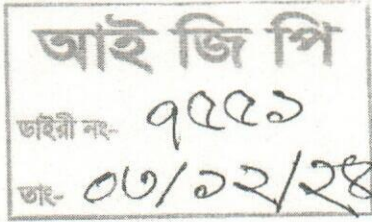 আই জি পি
ডাইরী নং- ৭৫৫১
তাং- ০৩/১২/২৪